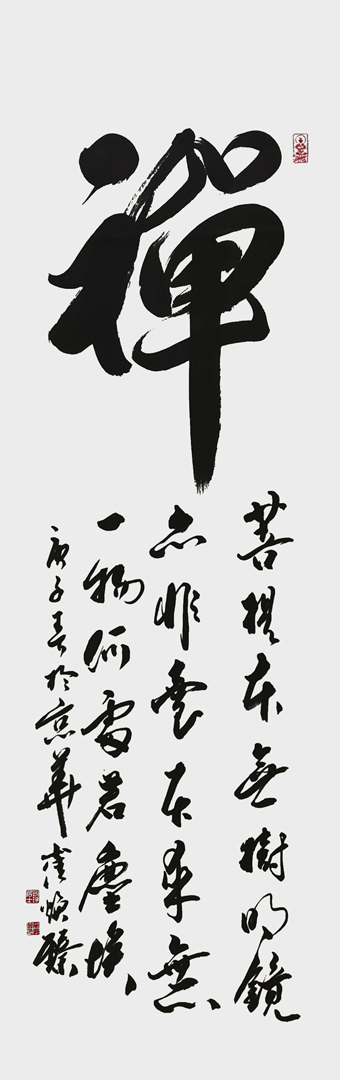 禪
菩提本無樹明鏡
亦非臺本來無
一物何處惹塵埃
庚子春於京華